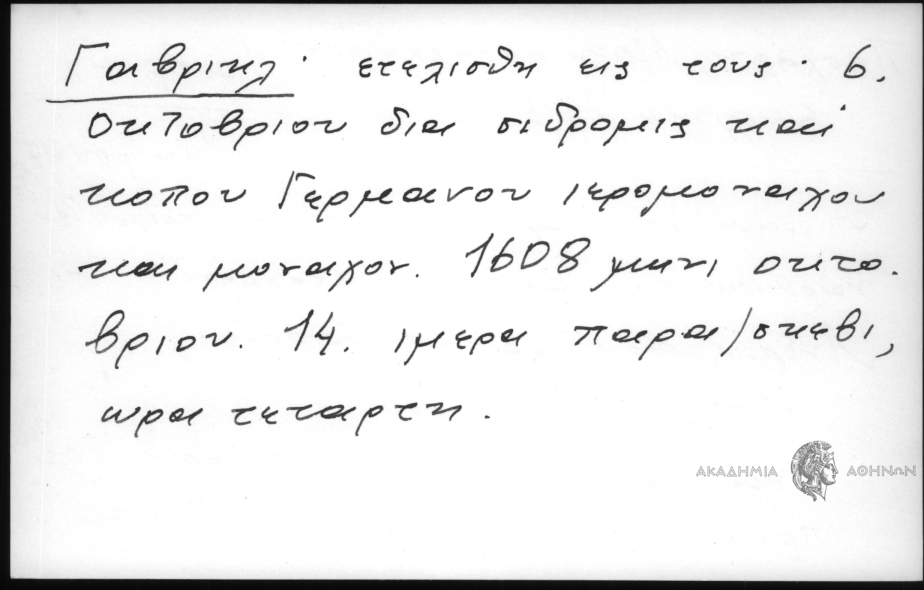 Γαβριηλ· ετελισθη εις τους· 6.
Οκτοβριου δια σιδρομις και
κοπου Γερμανου ιερομοναχου
και μοναχου. 1608 μηνι οκτο.
βριου. 14. ιμερα παρα/σκεβι,
ωρα τεταρτη.
ΑΚΑΔΗΜΙΑ ΑΘΗΝΩΝ